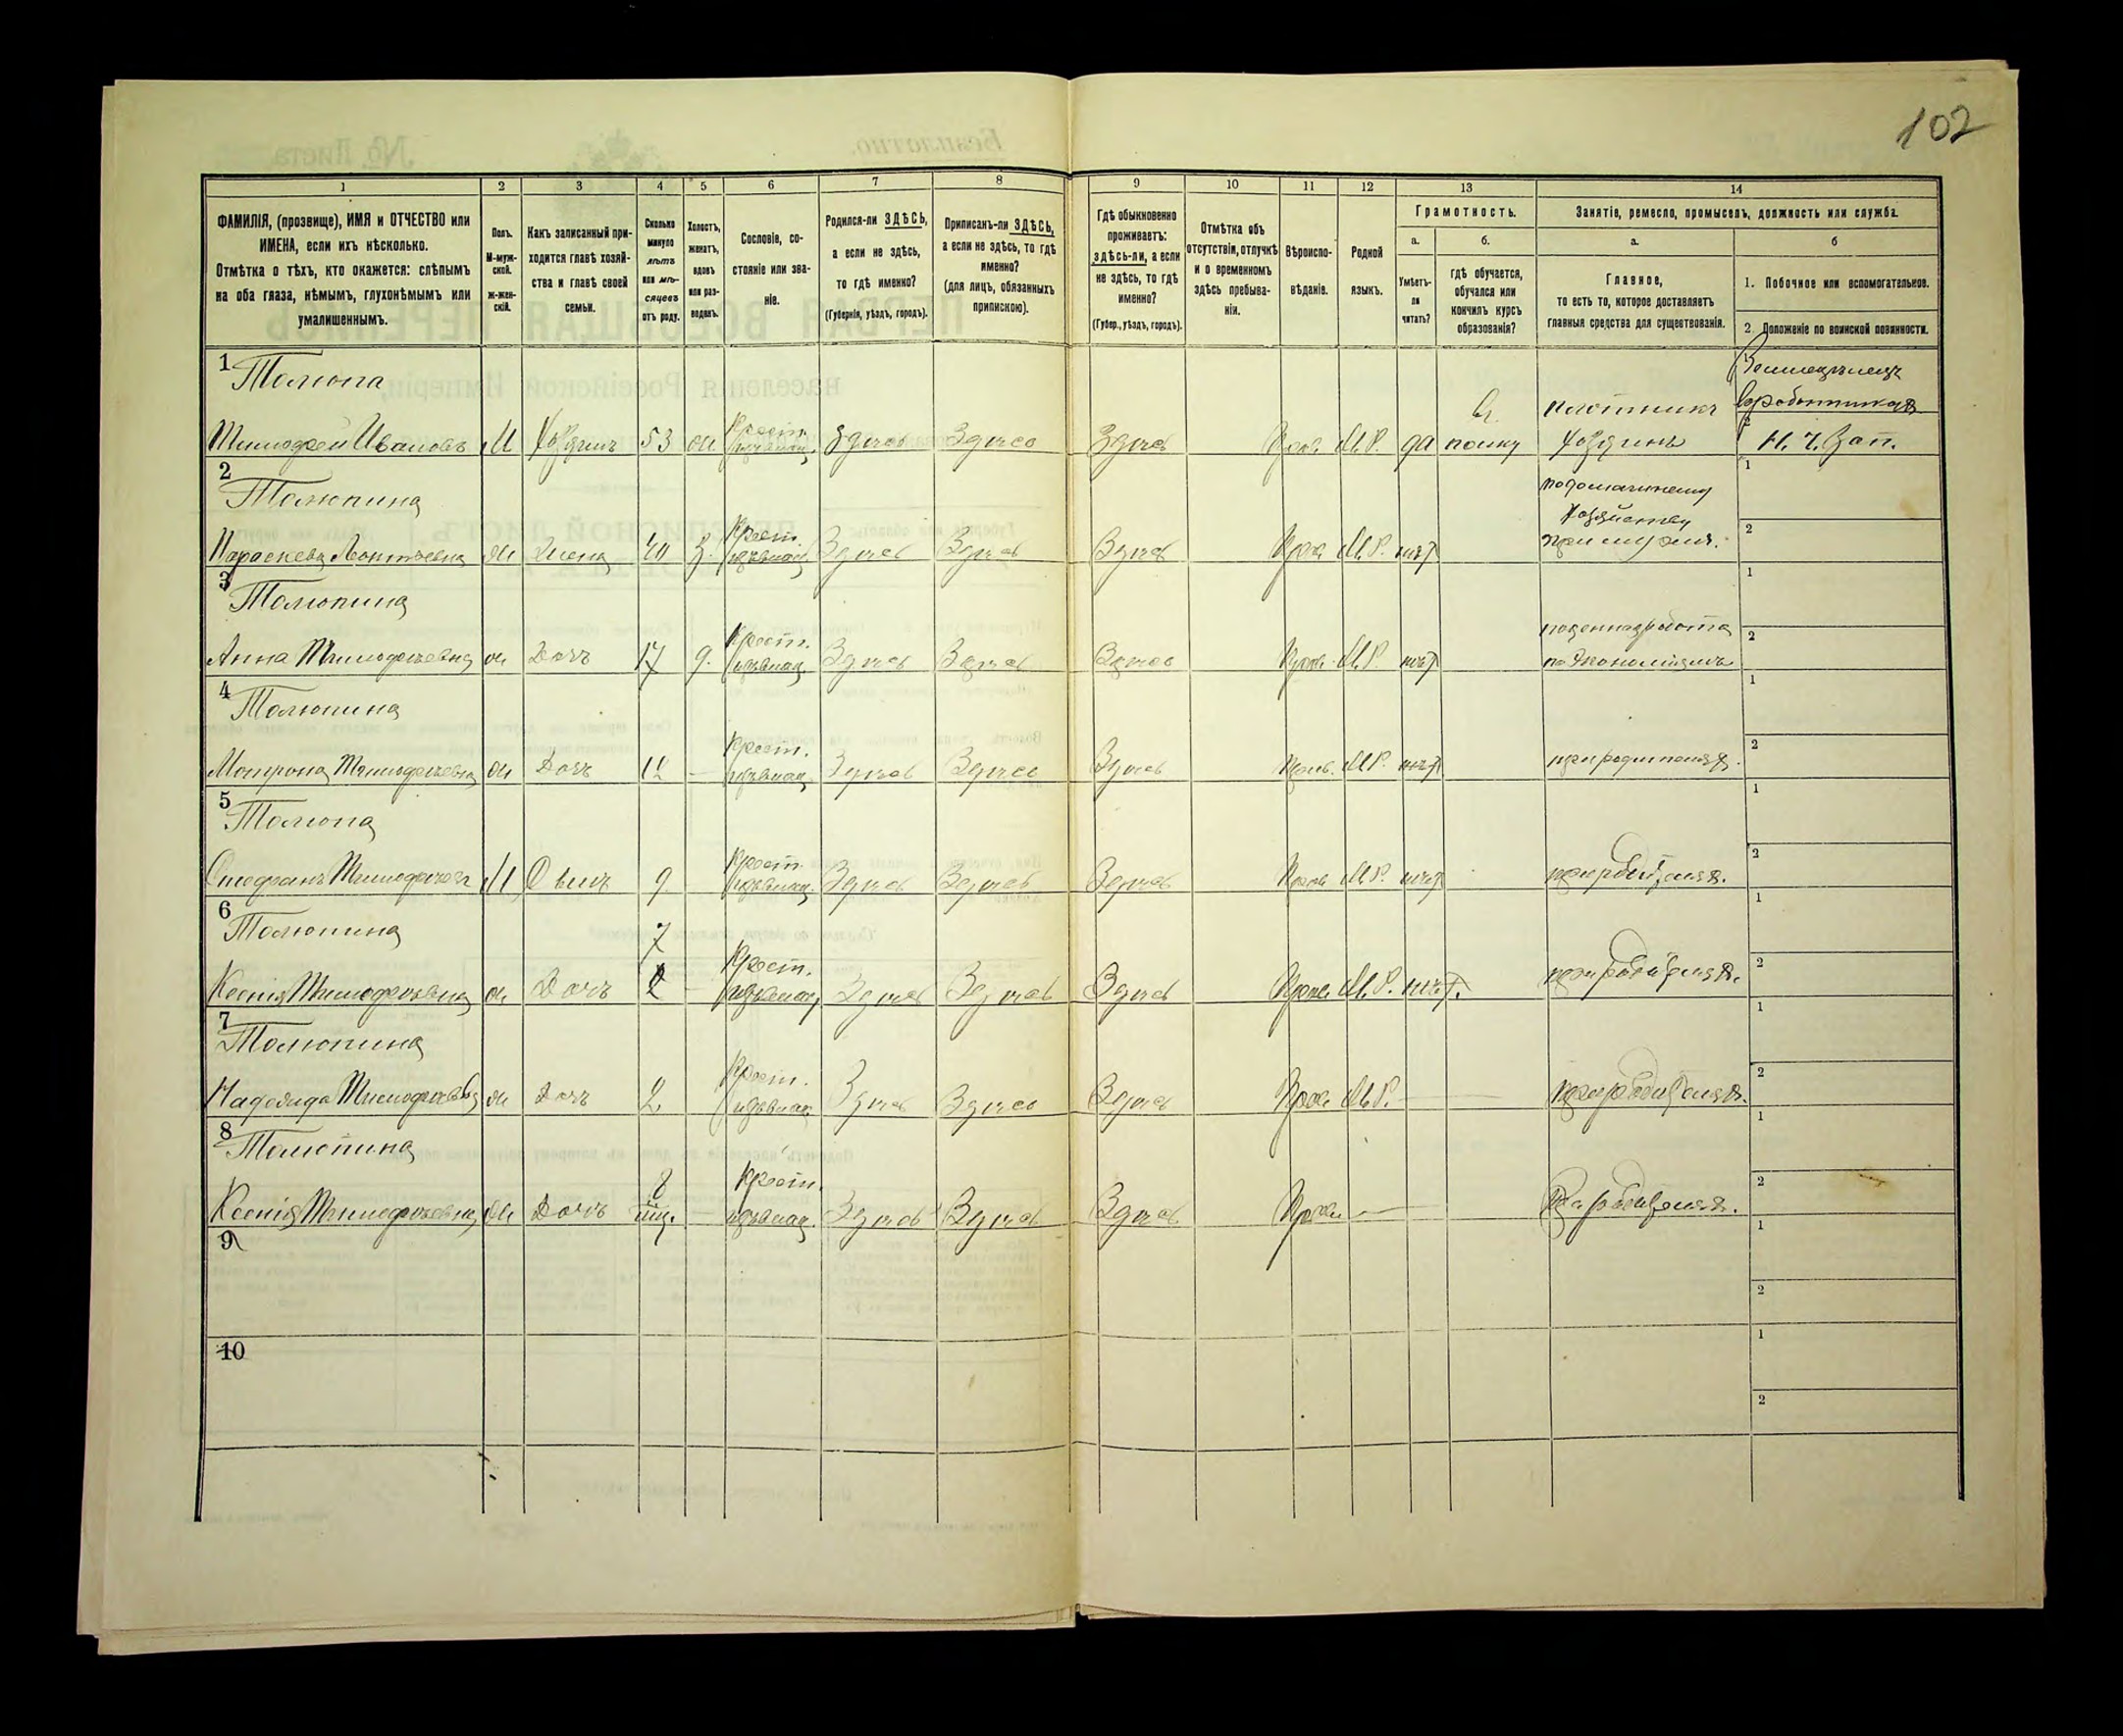 102
1 2 3 4 5 6 7 8 9 10 11 12 13 14
ФАМИЛІЯ, (прозвище), ИМЯ и ОТЧЕСТВО или
ИМЕНА, если ихъ нѣсколько.
Отмѣтка о тѣхъ, кто окажется: слѣпымъ
на оба глаза, нѣмымъ, глухонѣмымъ или
умалишеннымъ.
Полъ.
М-муж-
ской.
ж-жен-
скій.
Какъ записанный при-
ходится главѣ хозяй-
ства и главѣ своей
семьи.
Сколько
минуло
лѣтъ
или мѣ-
сяцевъ
отъ роду.
Холостъ,
женатъ,
вдовъ
или раз-
веденъ.
Сословіе, со-
стояніе или зва-
ніе.
Родился-ли ЗДѢСЬ,
а если не здѣсь,
то гдѣ именно?
(Губернія, уѣздъ, городъ).
Приписанъ-ли ЗДѢСЬ,
а если не здѣсь, то гдѣ
именно?
(для лицъ, обязанныхъ
припискою).
Гдѣ обыкновенно
проживаетъ:
здѣсь-ли, а если
не здѣсь, то гдѣ
именно?
(Губер., уѣздъ, городъ).
Отмѣтка объ
отсутствіи, отлучкѣ
и о временномъ
здѣсь пребыва-
ніи.
Вѣроиспо-
вѣданіе.
Родной
языкъ.
Грамотность.
а. б.
Умѣетъ-
ли
читать?
гдѣ обучается,
обучался или
кончилъ курсъ
образованія?
Занятіе, ремесло, промыселъ, должность или служба.
а. б
Главное,
то есть то, которое доставляетъ
главныя средства для существованія.
1. Побочное или вспомогательное.
2. Положеніе по воинской повинности.
1 Толюпа
плотникъ
Тимофей Ивановъ М Хозяинъ 53 Крест. Здѣсь Здѣсь Здѣсь Прав. М.Р. да хозяинъ Н. Ч. Зап.
2 Толюпина
Параскева Леонтьевна ж Жена 40 з. Крест. Здѣсь Здѣсь Здѣсь Прав. М.Р. нѣт при мужѣ.
3 Толюпина
Анна Тимофеевна ж Дочь 17 д. Крест. Здѣсь Здѣсь Здѣсь Прав. М.Р. нѣт
4 Толюпина
Мотрона Тимофеевна ж Дочь Крест. Здѣсь Здѣсь Здѣсь Прав. М.Р. нѣт при родителяхъ.
5 Толюпа
Стефанъ Тимофеев М Сынъ 9 Крест. Здѣсь Здѣсь Здѣсь Прав. М.Р. нѣт при родителяхъ.
6 Толюпина
7
Ксенія Тимофеевна ж Дочь Крест. Здѣсь Здѣсь Здѣсь Прав. М.Р. нѣт. при родителяхъ.
7 Толюпина
Надежда Тимофеевна ж Дочь 2 Крест. Здѣсь Здѣсь Здѣсь Прав. М.Р. при родителяхъ.
8 Толюпина
8
Ксенія Тимофеевна ж Дочь мѣс. Крест. Здѣсь Здѣсь Здѣсь Прав. при родителяхъ.
9
10